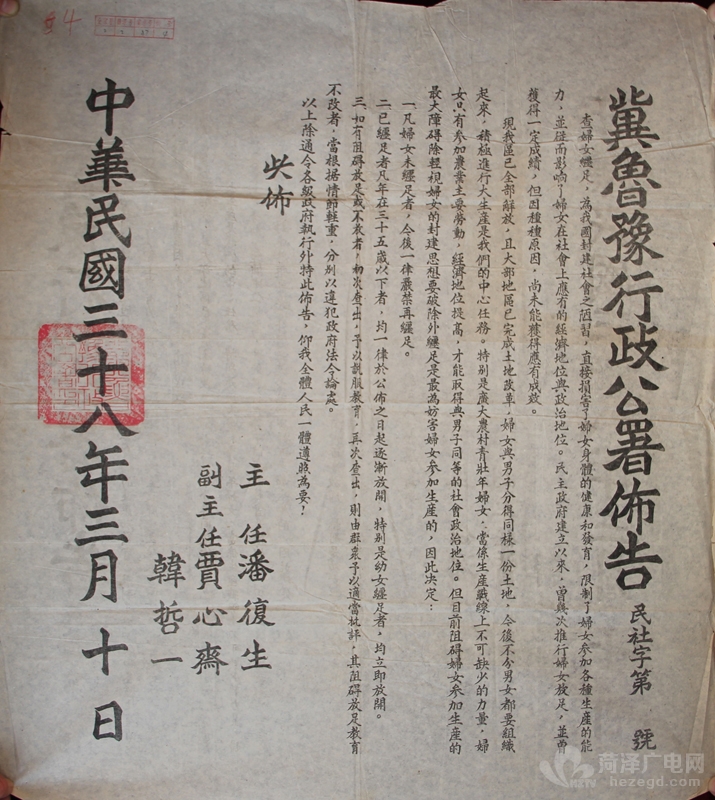 冀魯豫行政公署佈告 民社字第 號
查婦女纏足，為我國封建社會之陋習，直接損害了婦女身體的健康和發育，限制了婦女參加各種生產的能
力，並從而影响了婦女在社會上應有的經濟地位與政治地位。民主政府建立以來，曾與次推行婦女放足，並曾
獲得一定成績，但因種種原因，尚未能獲得應有成效。
現我區已全部解放，且大部地區已完成土地改革，婦女與男子分得同樣一份土地，今後不分男女都要組織
起來，積極進行大生產是我們的中心任務。特別是廣大農村青壯年婦女，當係生產戰線上不可缺少的力量，婦
女只有參加農業主要勞動，經濟地位提高，才能取得與男子同等的社會政治地位。但目前阻碍婦女參加生產的
最大障碍除輕視婦女的封建思想要破除外纏足是最為妨害婦女參加生產的，因此决定：
一凡婦女未纏足者，今後一律嚴禁再纏足。
二已纏足者凡年在三十五歲以下者，均一律於公佈之日起逐漸放開，特別是幼女纏足者，均立即放開。
三如有阻碍放足或不放者，初次查出，予以說服教育，再次查出，則由群眾予以適當批評，其阻碍放足教育
不改者，當根据情節輕重，分別以違犯政府法令論處。
以上除通令各級政府執行外特此佈告，仰我全體人民一體遵照為要！
此佈
主 任 潘復生
副主任 賈心齋
韓哲一
中華民國三十八年三月十日
4
菏泽广电网
hezegd.com